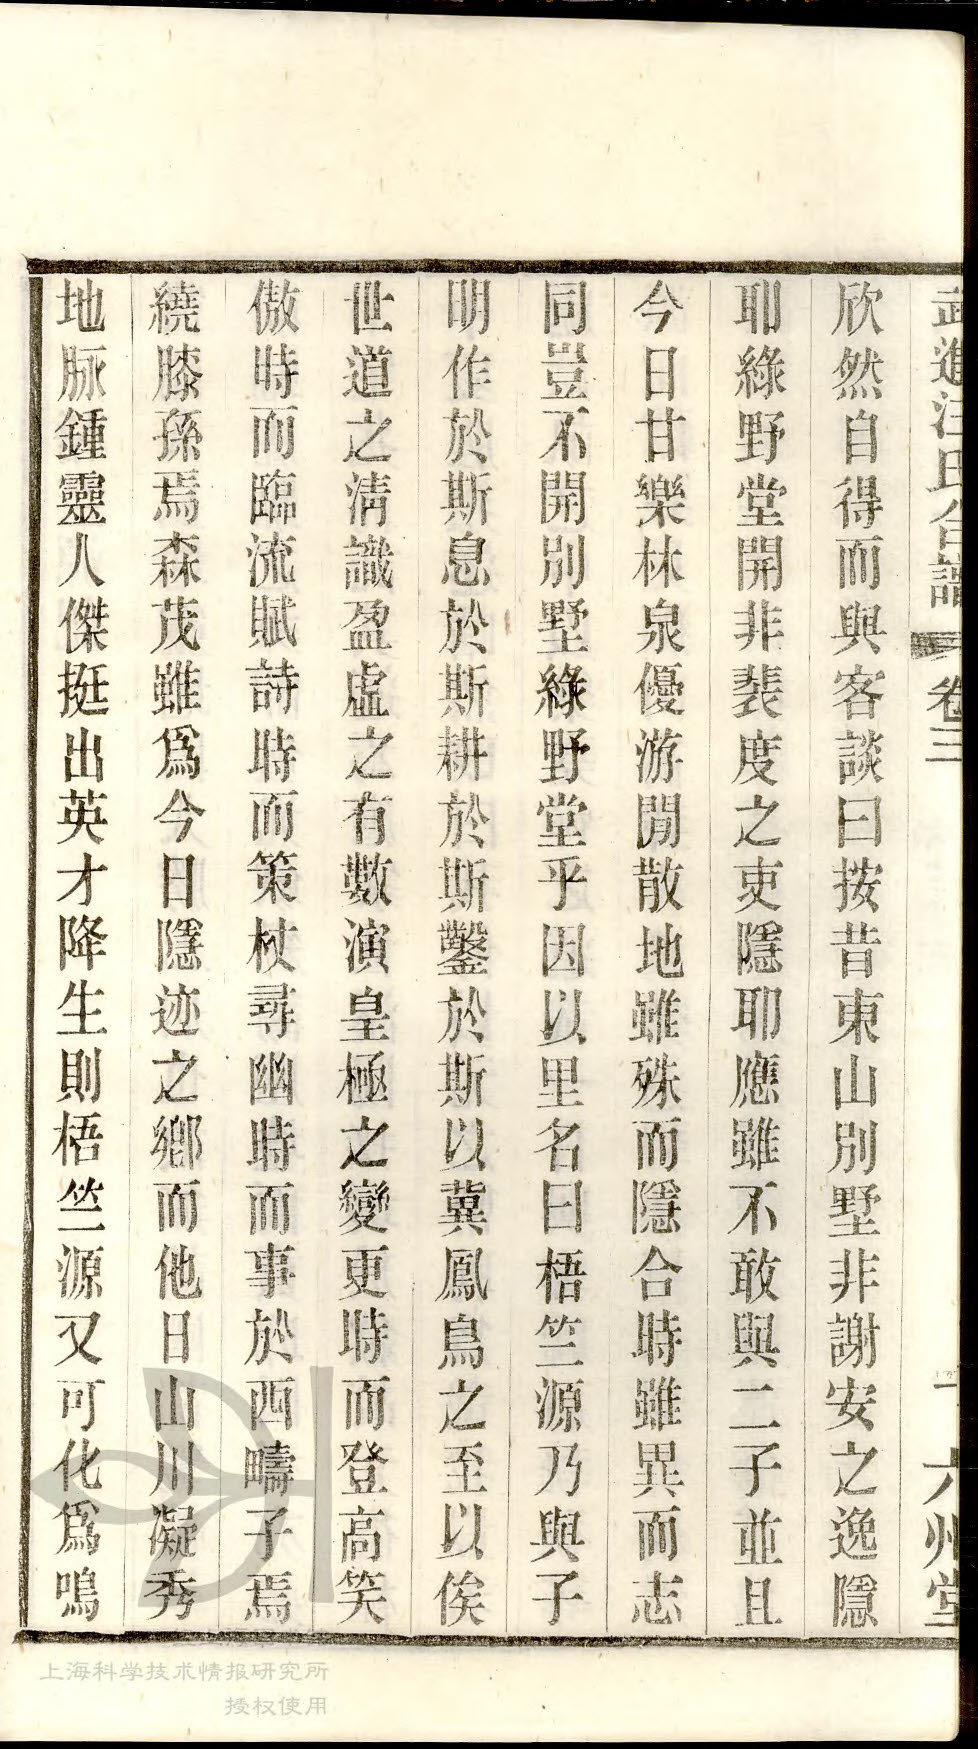 武進汪氏合譜 卷三 一 六州堂
欣然自得而與客談曰按昔東山別墅非謝安之逸隱
耶綠野堂開非裴度之吏隱耶應雖不敢與二子並且
今日甘樂林泉優游閒散地雖殊而隱合時雖異而志
同豈不開別墅綠野堂乎因以里名曰梧竺源乃與子
明作於斯息於斯耕於斯鑿於斯以冀鳳鳥之至以俟
世道之清識盈虛之有數演皇極之變更時而登高笑
傲時而臨流賦詩時而策杖尋幽時而事於西疇子焉
繞膝孫焉森茂雖爲今日隱迹之鄉而他日山川凝秀
地脉鍾靈人傑挺出英才降生則梧竺源又可化爲鳴
上海科学技术情报研究所
授权使用